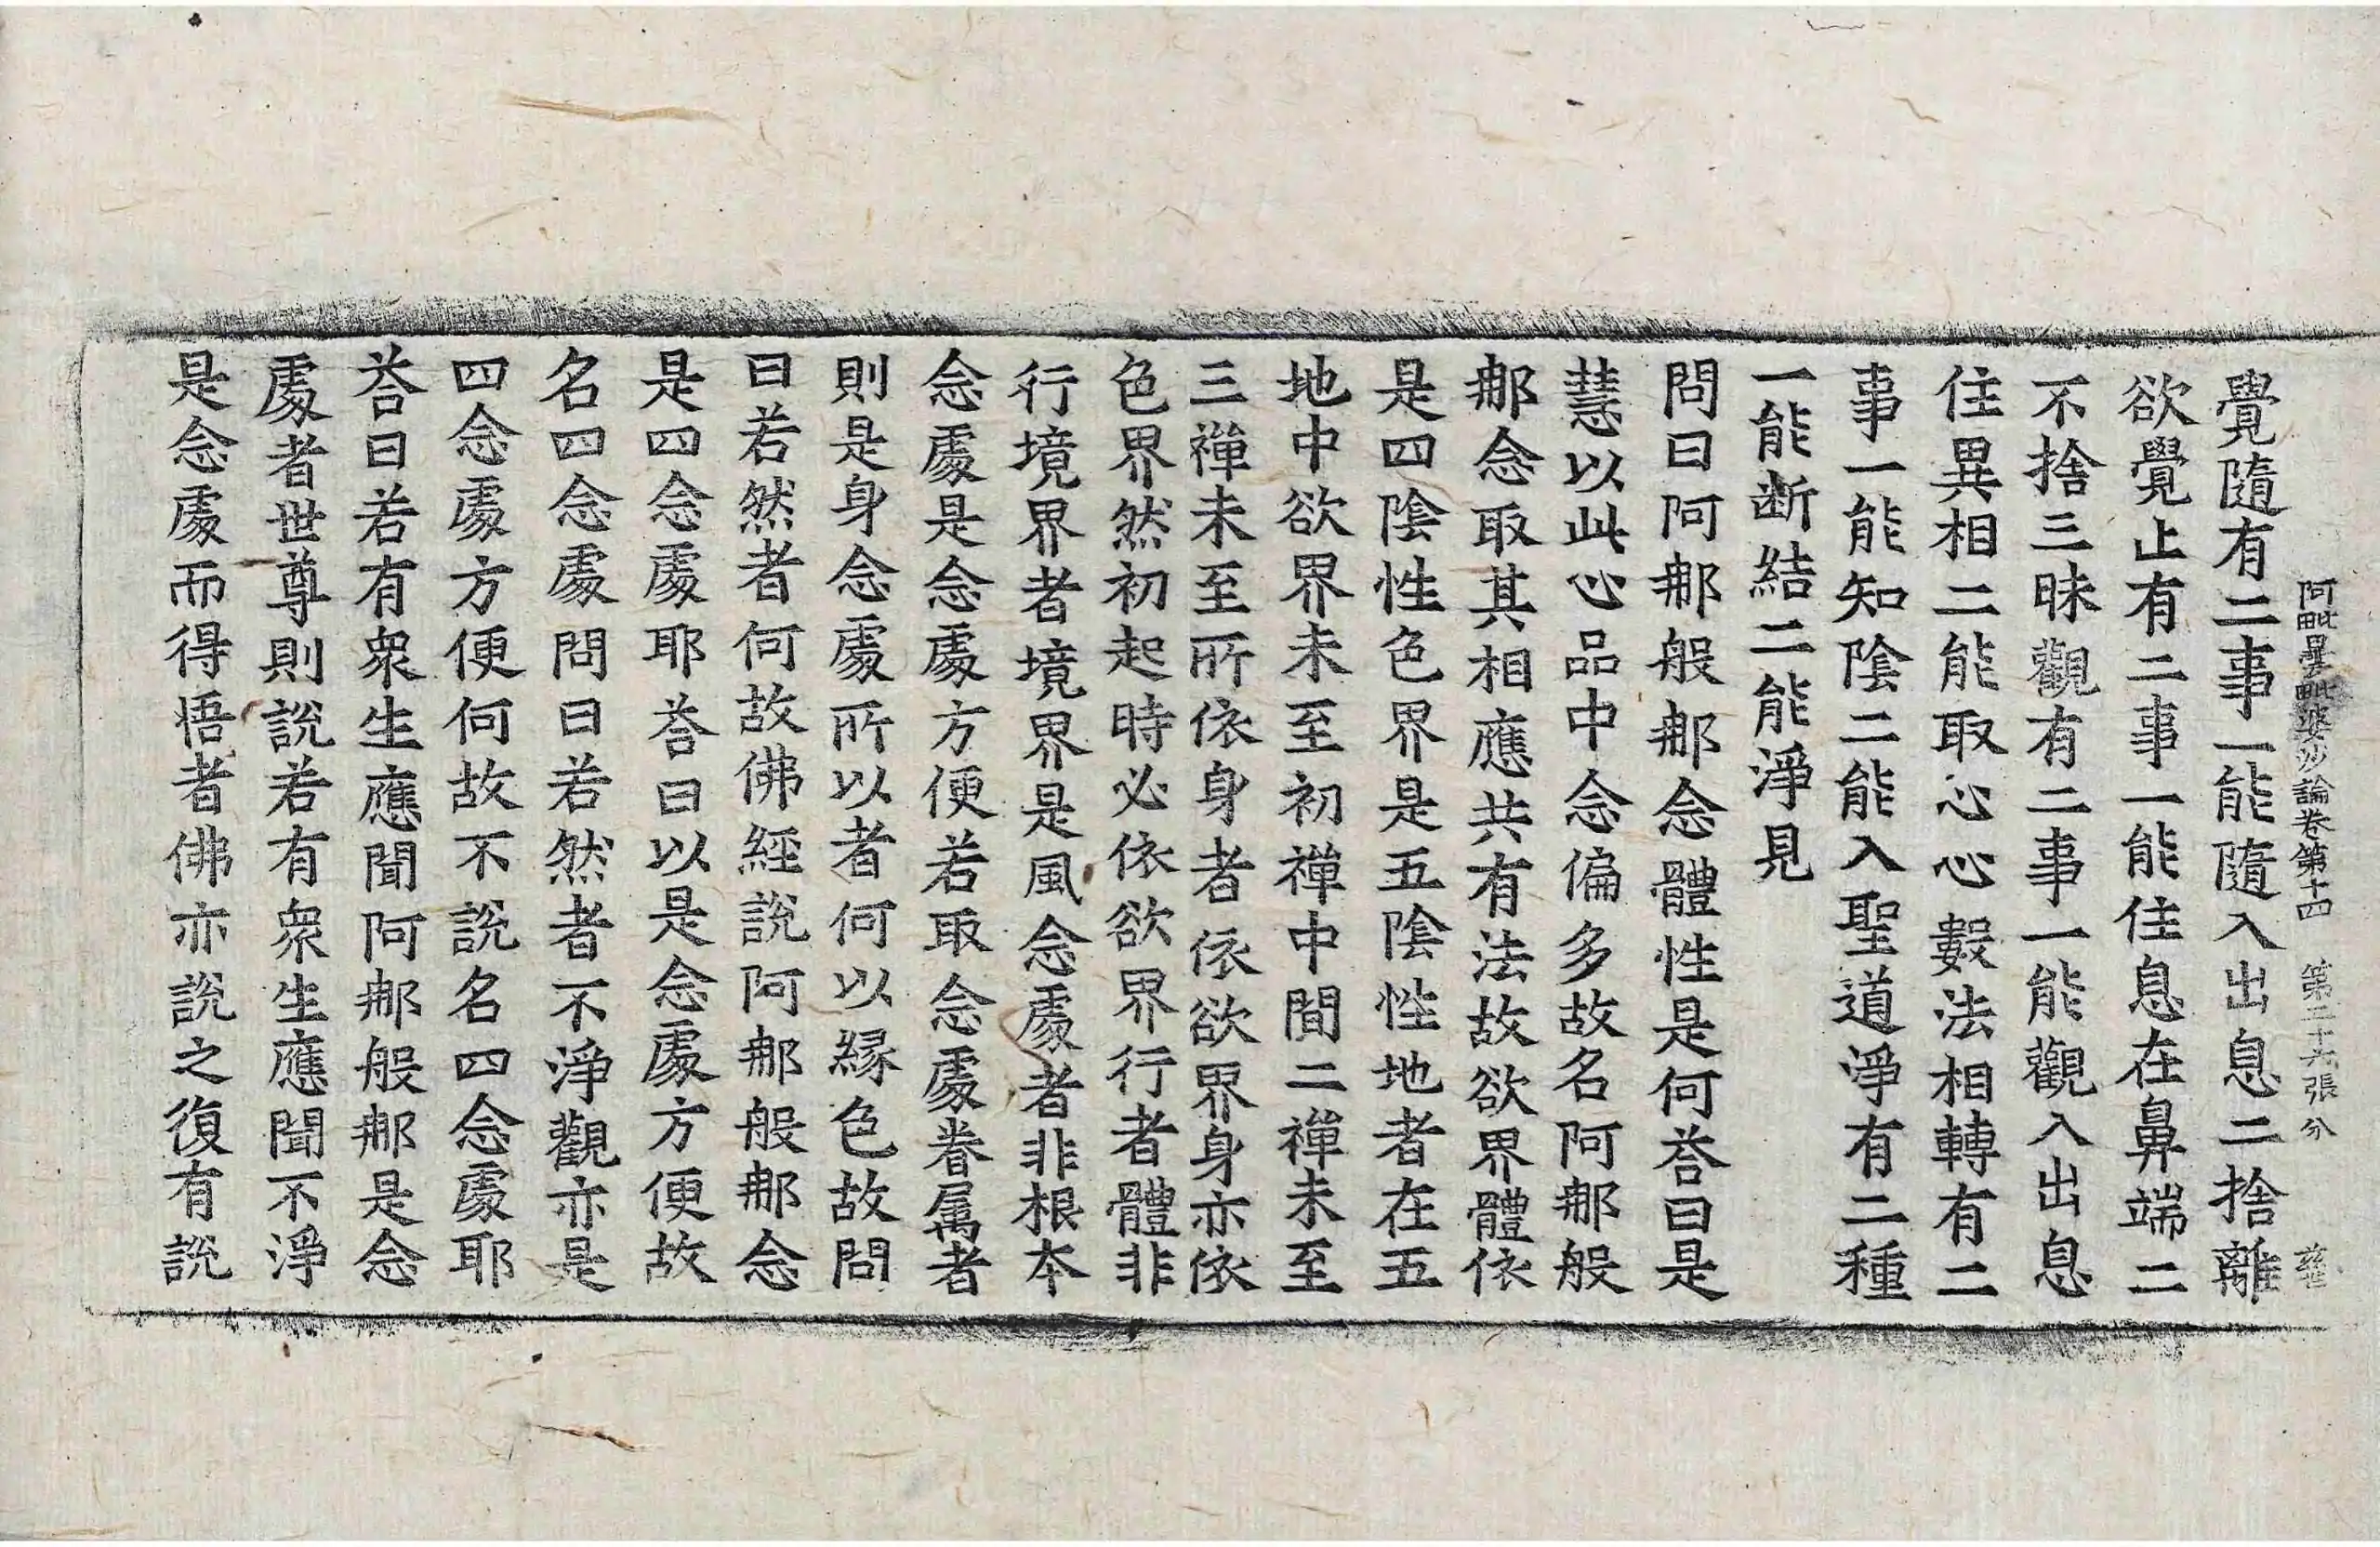 阿毗曇毗婆沙論卷第十四 第二十六張 分
覺隨有二事一能隨入出息二捨離
欲覺止有二事一能住息在鼻端二
不捨三昧觀有二事一能觀入出息
住異相二能取心心數法相轉有二
事一能知陰二能入聖道淨有二種
一能断結二能淨見
問曰阿那般那念體性是何荅曰是
慧以此心品中念偏多故名阿那般
那念取其相應共有法故欲界體依
是四陰性色界是五陰性地者在五
地中欲界未至初禪中間二禪未至
三禪未至所依身者依欲界身亦依
色界然初起時必依欲界行者體非
行境界者境界是風念處者非根本
念處是念處方便若取念處眷属者
則是身念處所以者何以緣色故問
曰若然者何故佛經說阿那般那念
是四念處耶荅曰以是念處方便故
名四念處問曰若然者不淨觀亦是
四念處方便何故不說名四念處耶
荅曰若有衆生應聞阿那般那是念
處者世尊則說若有衆生應聞不淨
是念處而得悟者佛亦說之復有說